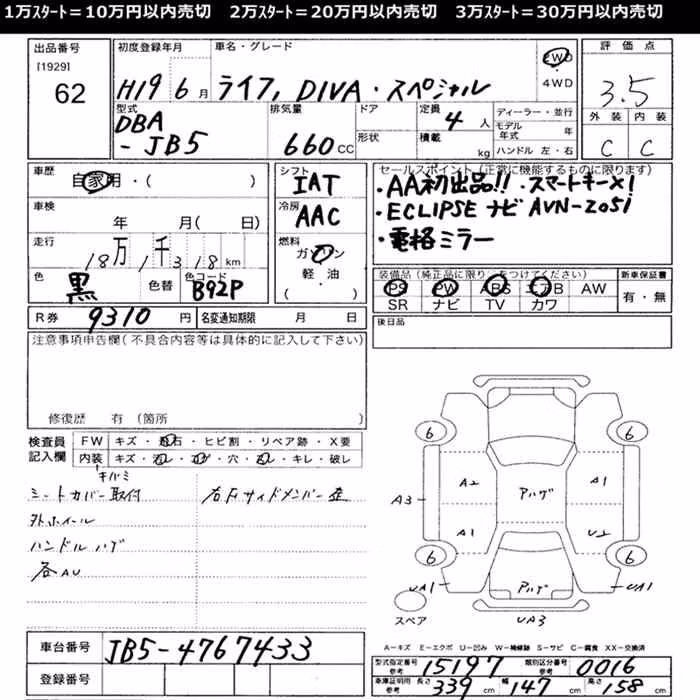 1万ｽﾀｰﾄ＝10万円以内売切　2万ｽﾀｰﾄ＝20万円以内売切　3万ｽﾀｰﾄ＝30万円以内売切
出品番号
[1929]
62
初度登録年月
H19 6月
車名・グレード
ライフ, DIVA・スペシャル
2WD
4WD
評価点
3.5
外装 内装
C C
型式
DBA
-JB5
排気量
660 CC
ドア
形状
定員
4 人
積載
kg
ディーラー・並行
モデル年式 年
ハンドル 左・右
車歴
自家用・( )
車検
年 月( 日)
走行
18万1千318km
色
黒
色替
色コード
B92P
シフト
IAT
冷房
AAC
燃料
ガソリン
軽・油
( )
セールスポイント(正常に機能するものに限ります)
・AA初出品!!・スマートキー×1
・ECLIPSE ナビ AVN-Z05i
・電格ミラー
装備品(純正品に限り○をつけてください)
PS PW ABS エアB AW
SR ナビ TV カワ
新車保証書
有・無
R券 9310 円
名変通知期限 月 日
後日品
注意事項申告欄(不具合内容等は具体的に記入して下さい)
修復歴 有(箇所
検査員
記入欄
FW キズ・飛石・ヒビ割・リペア跡・X要
内装 キズ・汚レ・コゲ・穴・スレ・キレ・破レ
キバミ
シートカバー取付
外ホイール
ハンドル ハゲ
各AU
右Fサイドメンバー歪
6 6
A2 アハゲ A1
A3
A1 U2
6 6
UA1 アハゲ UA1
スペア
UA3
A－キズ E－エクボ U－凹み W－補修跡 S－サビ C－腐食 XX－交換済
車台番号 JB5-4767433
登録番号
型式指定番号
参考
15197
類別区分番号
参考
0016
車庫証明用
参考
長さ 339 cm 幅 147 cm 高さ 158 cm